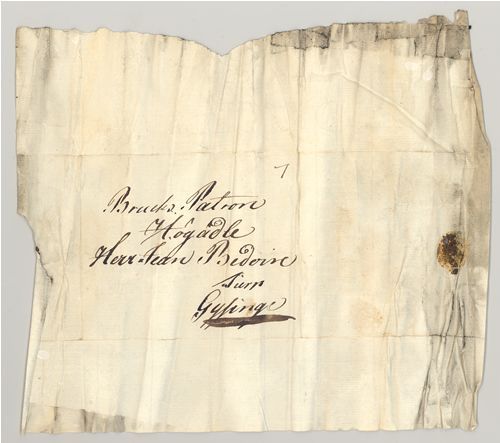 7
Bruks Patron
Högädle
Herr Jean Bedoire
Gysinge